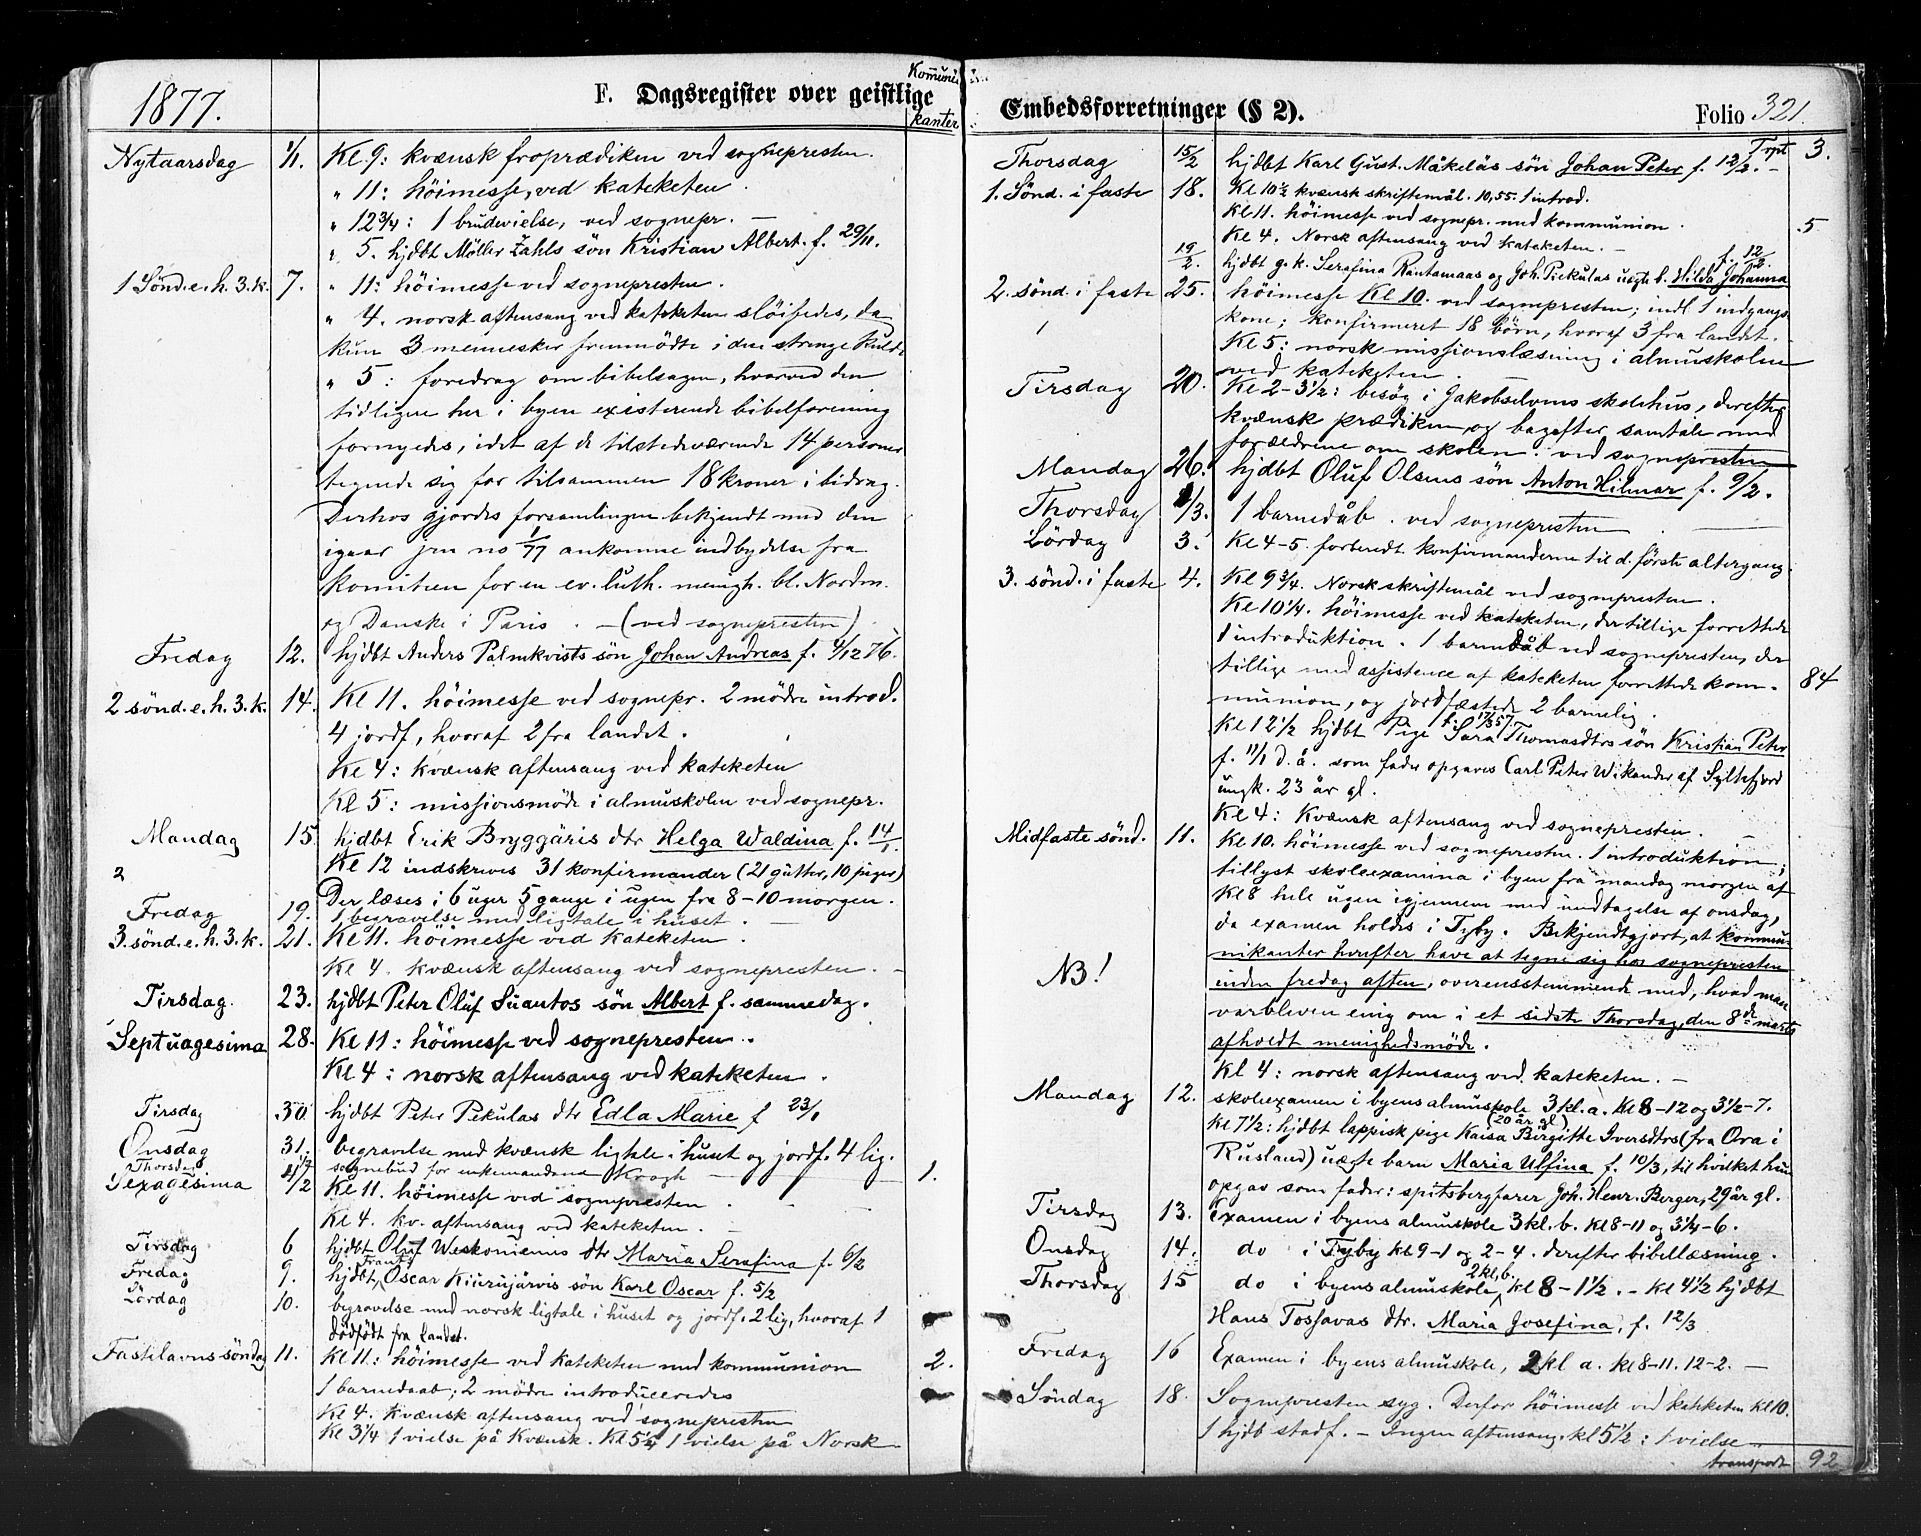 1877.
F. Dagsregister over geistlige
Kommuni
kanter
Nytaarsdag 1/1. Kl. 9: kvænsk froprædiken ved sognepresten.
" 11: höimesse, ved kateketen.
" 12 3/4: 1 brudevielse, ved sognepr. —
" 5. hjdbt Möller Zahls sön Kristian Albert. f. 29/11.
1 Sönd. e. h. 3. k. 7. " 11: höimesse ved sognepresten.
" 4. norsk aftensang ved kateketen slöifedes, da
kun 3 mennesker fremmödte i den strenge kulde
" 5: foredrag om bibelsagen, hvorved den
tidligere her i byen existerende bibelforening
fornyedes, idet af de tilstedeværende 14 personer
tegnede sig for tilsammen 18 kroner i bidrag.
Derhos gjordes forsamlingen bekjendt med den
igaar jrn no 1/77 ankomne indbydelse fra
komiteen for en ev. luth. menigh. bl. Nordm.
og Danske i Paris. — (ved sognepresten)
Fredag 12. hjdbt Anders Palmkvists sön Johan Andreas f. 4/12 76.
2 sönd. e. h. 3. k. 14. Kl 11. höimesse ved sognepr. 2 mödre introd.
4 jordf, hvoraf 2 fra landet.
Kl 4: kvænsk aftensang ved kateketen
Kl 5: missionsmöde i almuskolen ved sognepr.
Mandag 15. hjdbt Erik Bryggäris dtr Helga Waldina f. 14/1.
2 Kl 12 indskreves 31 konfirmander (21 gutter, 10 piger)
Der læses i 6 uger 5 gange i ugen fra 8-10 morgen.
Fredag 19. 1 begravelse med ligtale i huset. —
3. sönd. e. h. 3. k. 21. Kl 11. höimesse ved kateketen.
Kl 4. kvænsk aftensang ved sognepresten. —
Tirsdag. 23. hjdbt Peter Oluf Suantos sön Albert f. sammedag.
Septuagesima 28. Kl 11: höimesse ved sognepresten.
Kl 4: norsk aftensang ved kateketen.
Tirsdag 30 hjdbt Peter Pekulas dtr Edla Marie f 23/1
Onsdag 31. begravelse med kvænsk ligtale i huset og jordf. 4 lig.
Thorsdag 1/2 sognebud for enkemandens Krogh — 1.
Sexagesima 4/2 Kl 11. höimesse ved sognepresten.
Kl 4. kv. aftensang ved kateketen.
Tirsdag 6 hjdbt Oluf Weskoniemis dtr Maria Serafina f. 6/2
Fredag 9. hjdbt Frants Oscar Kiurujärvis sön Karl Oscar f. 5/2
Lördag 10. begravelse med norsk ligtale i huset og jordf. 2 lig, hvoraf 1
dödfödt fra Landet.
Fastelavns söndag 11. Kl 11: höimesse ved kateketen med kommunion 2.
1 barnedaab; 2 mödre introduceredes
Kl 4. kvænsk aftensang ved sognepresten
Kl 3 1/4 1 vielse på Kvænsk. Kl 5 1/4 1 vielse på Norsk
Embedsforretninger (§ 2). Folio 321.
Trpt 3.
Thorsdag 15/2 hjdbt Karl Gust. Mäkeläs sön Johan Peter f. 12/2. —
1. Sönd. i faste 18. Kl 10 1/2 kvænsk skriftemål. 10,55. 1 introd.
Kl 11. höimesse ved sognepr. med kommunion. 5
Kl 4. Norsk aftensang ved kateketen. —
19/2. hjdbt g. k. Serafina Rantamaas og Joh. Piekulas uegte b. Hilda Johanna f. 12/2.
2. sönd. i faste 25. höimesse Kl 10. ved sognepresten; indl. 1 indgangs
kone; konfirmeret 18 börn, hvoraf 3 fra landet.
Kl 5: norsk missionslæsning i almuskolen
ved kateketen.
Tirsdag 20. Kl 2-3 1/2: besög i Jakobselvens skolehus, derefter
kvænsk prædiken og bagefter samtale med
forældrene om skolen. ved sognepresten
Mandag 26. hjdbt Oluf Olsens sön Anton Hilmar f. 9/2.
Thorsdag 1/3. 1 barnedåb. ved sognepresten
Lördag 3. Kl 4-5. forberedt konfirmanderne til d. förste altergang.
3. sönd. i faste 4. Kl 9 3/4. Norsk skriftemål ved sognepresten.
Kl 10 1/4. höimesse ved kateketen, der tillige forrettede
1 introduktion. 1 barnedåb ved sognepresten, der
tillige med assistence af kateketen forrettede kom- 84
munion, og jordfæstede 2 barnelig.
Kl 12 1/2 hjdbt Pige Sara Thomasdtrs f. 17/3 57. sön Kristian Peter
f. 11/1 d. å. som fader opgaves Carl Peter Wikander af Syltefjord
ungk. 23 år gl.
Kl 4: Kvænsk aftensang ved sognepresten.
Midfaste sönd. 11. Kl 10. höimesse ved sognepresten. 1 introduktion;
tillyst skoleexamina i byen fra mandag morgen af
Kl 8 hele ugen igjennem med undtagelse af onsdag,
da examen holdes i Tyby. Bekjendtgjort, at kommu-
NB! nikanter herefter have at tegne sig hos sognepresten
inden fredag aften, overensstemmende med, hvad man
var bleven enig om i et sidste Thorsdag, den 8de marts
afholdt menighedsmöde.
Kl 4: norsk aftensang ved kateketen. —
Mandag 12. skoleexamen i byens almuskole 3 kl. a. Kl 8-12 og 3 1/2-7.
Kl 7 1/2: hjdbt lappisk pige Kaisa Birgitte Iversdtrs (20 år gl) (fra Ora i
Rusland) uægte barn Maria Ulfina f. 10/3, til hvilket hun
opgav som fader: spitsbergfarer Joh. Henr. Berger, 29 år gl.
Tirsdag 13. Examen i byens almuskole 3 kl. b. Kl 8-11 og 3 1/4-6.
Onsdag 14. do i Tyby kl 9-1 og 2-4. derefter bibellæsning.
Thorsdag 15 do i byens almuskole 2 kl. b. kl 8-1 1/2. - Kl 4 1/2 hjdbt
Hans Tossavas dtr. Maria Josefina, f. 12/3
Fredag 16 Examen i byens almuskole, 2 kl a. kl 8-11. 12-2. —
Söndag 18. Sognepresten syg. Derfor höimesse ved kateketen kl 10.
1 hjdb stadf. — Ingen aftensang. kl 5 1/2: 1 vielse
transport 92